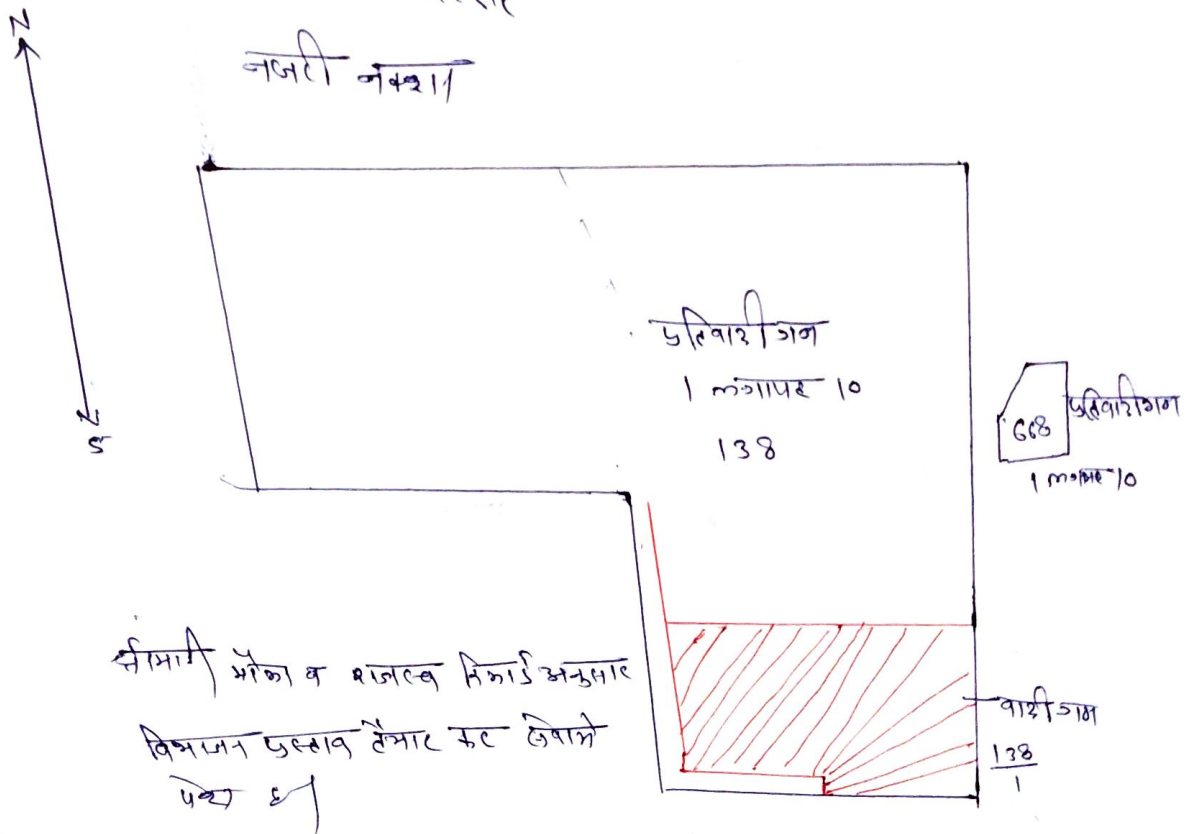 N
नजरी नक्शा
S
प्रतिवादीगन
1 लगायत 10
138
668
प्रतिवादीगन
1 लगायत 10
श्रीमान मौका व राजस्व रिकार्ड अनुसार
विभाजन प्रस्ताव तैयार कर सेवामे
पेश है
वादीगन
138
1